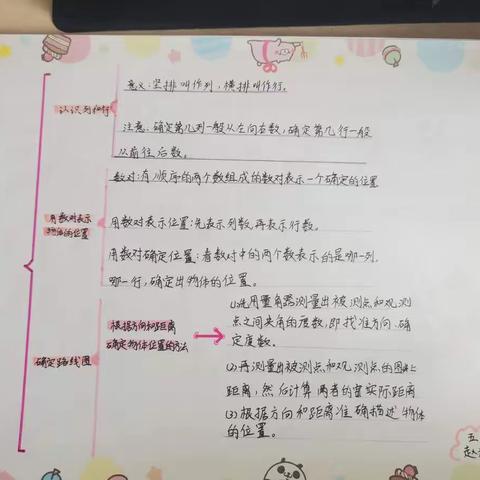 意义：坚排叫作列，横排叫作行。
认识列和行
注意：确定第几列一般从左向右数，确定第几行一般
从前往后数。
数对：有顺序的两个数组成的数对表示一个确定的位置
用数对表示
物体的位置
用数对表示位置：先表示列数，再表示行数。
用数对确定位置：看数对中的两个数表示的是哪一列，
哪一行，确定出物体的位置。
(1)先用量角器测量出被测点和观测
点之间夹角的度数，即找准方向、确
定度数。
根据方向和距离
确定物体位置的方法
确定路线图
(2)再测量出被测点和观测点的图上
距离，然后计算两者的实际距离
(3)根据方向和距离准确描述物体
的位置。
五
赵